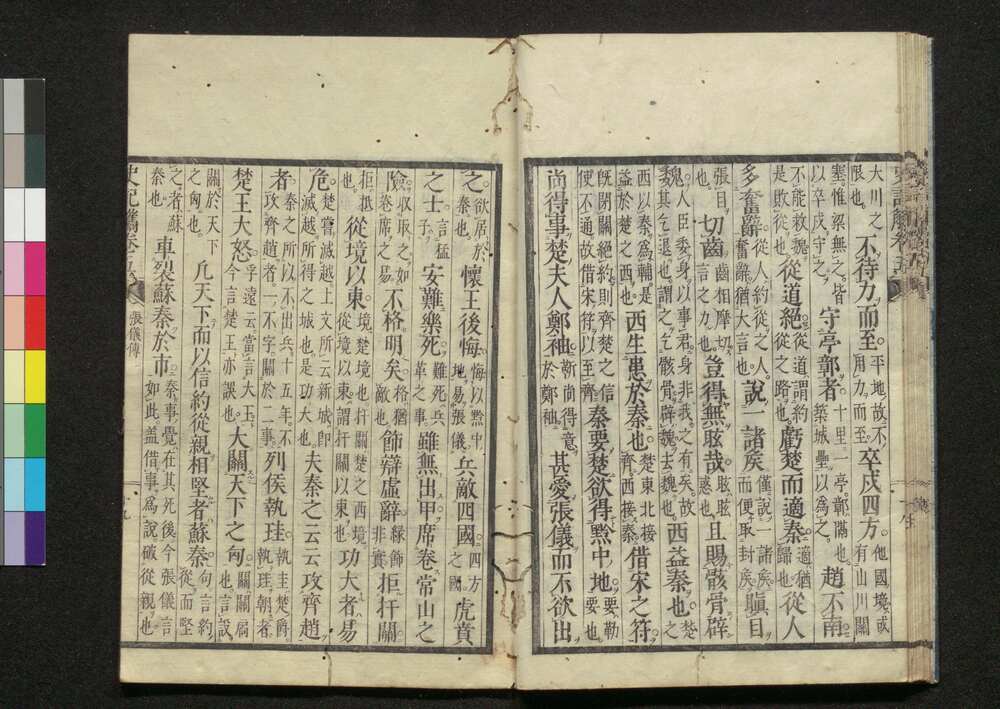 大川之限也不待力而至平地故不用力而至卒戍四方他國境或有山川關
塞惟梁無之皆以卒戍守之守亭鄣者十里一亭鄣滿也築城壘以爲之趙不南
不能救魏是敗從也從道絕從道謂約從之路也虧楚而適秦適猶歸也從人
多奮辭從人約從之人奮辭猶大言也說一諸矦僅說一諸矦而便取封矦瞋目
張目也切齒齒相摩切言之力也豈得無眩哉眩眩惑也且賜骸骨辟
魏人臣委身以事君身非我之有矣故其乞退也謂之乞骸骨辟魏去魏也西益秦也楚之
西以秦爲輔是益於楚之西也西生患於秦也楚東北接齊西接秦借宋之符
旣閉關絕約則齊楚之信使不通故借宋符以至齊秦要楚欲得黔中地要勒要也
尚得事楚夫人鄭袖靳尚得意於鄭袖甚愛張儀而不欲出
之欲居於秦也懷王後悔悔以黔中地易張儀兵敵四國四方之國虎賁
之士言猛士子安難樂死難死兵革之事雖無出甲席卷常山之
險收取之如卷席之易不格明矣格猶敵也飾辯虛辭緣飾非實拒扞關
拒抵也從境以東境楚境也扞關楚之西境從境以東謂扞關以東也功大者易
危楚嘗滅越上文所云新城卽滅越所得之城也是功大也夫秦之云云攻齊趙
者秦之所以不出兵十五年不攻齊趙者一不字關於二事列侯執珪執珪楚爵執珪朝者
楚王大怒孚遠云當言大王今言楚王亦誤也大關天下之匈關關扃也言說
關於天下之匈也凡天下而以信約從親相堅者蘇秦句言約從而堅
之者蘇秦也車裂蘇秦於市秦事覺在其死後今張儀言如此蓋借事爲說破從親也
史記觿卷之五 張儀傳 十九